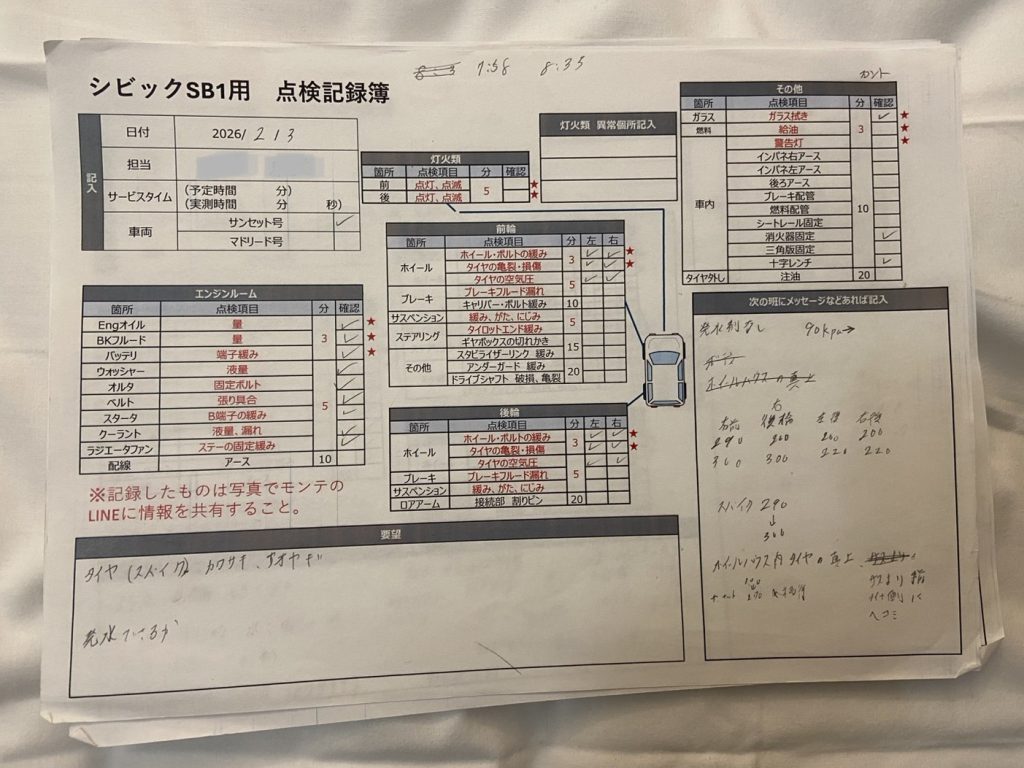 7:58 8:35
シビックSB1用 点検記録簿
記入
日付 2026/ 2 13
担当
サービスタイム (予定時間 分)
(実測時間 分 秒)
車両 サンセット号 ✓
マドリード号
灯火類
箇所 点検項目 分 確認
前 点灯、点滅 5 ★
後 点灯、点滅 ★
灯火類 異常個所記入
その他
箇所 点検項目 分 確認
ガラス ガラス拭き 3 ✓ ★
燃料 給油 ★
車内 警告灯 10 ★
インパネ右アース
インパネ左アース
後ろアース
ブレーキ配管
燃料配管
シートレール固定
消火器固定 ✓
三角版固定
十字レンチ ✓
タイヤ外し 注油 20
前輪
箇所 点検項目 分 左 右
ホイール ホイール・ボルトの緩み 3 ✓ ✓ ★
タイヤの亀裂・損傷 ✓ ✓ ★
タイヤの空気圧 5 ✓ ✓
ブレーキ ブレーキフルード漏れ
キャリパー・ボルト緩み 10
サスペンション 緩み、がた、にじみ 5
ステアリング タイロットエンド緩み
ギヤボックスの切れかき 15
その他 スタビライザーリンク 緩み
アンダーガード 緩み 20
ドライブシャフト 破損、亀裂
エンジンルーム
箇所 点検項目 分 確認
Engオイル 量 3 ✓ ★
BKフルード 量 ✓ ★
バッテリ 端子緩み ✓ ★
ウォッシャー 液量 5 ✓
オルタ 固定ボルト ✓
ベルト 張り具合 ✓
スタータ B端子の緩み ✓
クーラント 液量、漏れ ✓
ラジエータファン ステーの固定緩み ✓
配線 アース 10
後輪
箇所 点検項目 分 左 右
ホイール ホイール・ボルトの緩み 3 ✓ ✓ ★
タイヤの亀裂・損傷 ✓ ✓ ★
タイヤの空気圧 5 ✓ ✓
ブレーキ ブレーキフルード漏れ
サスペンション 緩み、がた、にじみ
ロアアーム 接続部 割りピン 20
※記録したものは写真でモンテの
LINEに情報を共有すること。
次の班にメッセージなどあれば記入
90kpa→
ホイールハウスの真上
右
右前 後輪 左後 右後
290 200 200 200
300 300 220 220
スパイク 290
↓
300
ホイールハウス内タイヤの真上
ヘコミ
要望
タイヤ(スパイク) カワサキ、アオヤギ